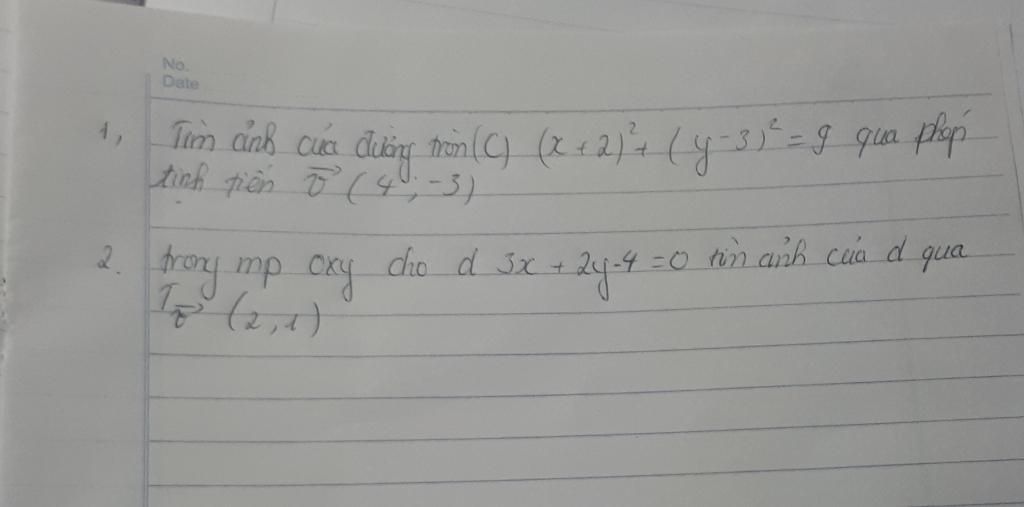 No.
Date
1, Tìm ảnh của đường tròn (C) (x+2)²+(y-3)²=9 qua phép
tịnh tiến v→ (4;-3)
2. trong mp oxy cho d 3x+2y-4=0 tìn ảnh của d qua
T v→ (2,1)